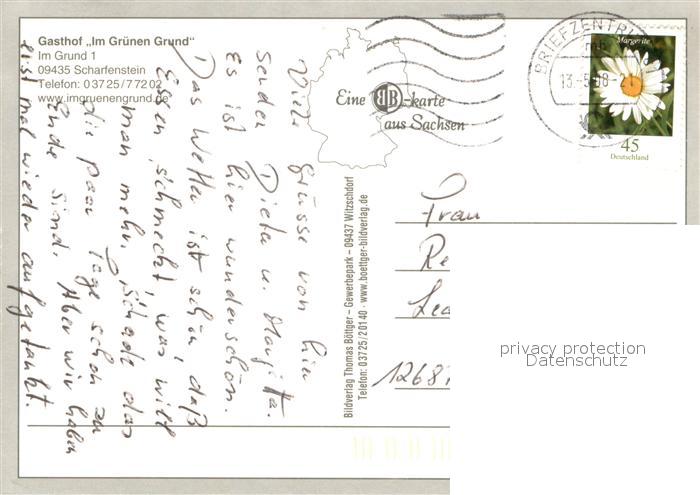 Gasthof „Im Grünen Grund"
Im Grund 1
09435 Scharfenstein
Telefon: 0 37 25 / 7 72 02
www.imgruenengrund.de
Eine BB-karte
aus Sachsen
BRIEFZENTRUM
13.-5.08-21
Margerite
45
Deutschland
Viele Grüsse von hier
senden Dieter u. Margitta.
Es ist hier wunderschön.
Das Wetter ist schön, daß
Essen schmeckt, was will
man mehr. Schade das
die paar Tage schon zu
Ende sind. Aber wir haben
erst mal wieder aufgetankt.
Bildverlag Thomas Böttger – Gewerbepark – 09437 Witzschdorf
Telefon: 0 37 25 / 2 01 40 · www.boettger-bildverlag.de
Frau
Re
1268
privacy protection
Datenschutz